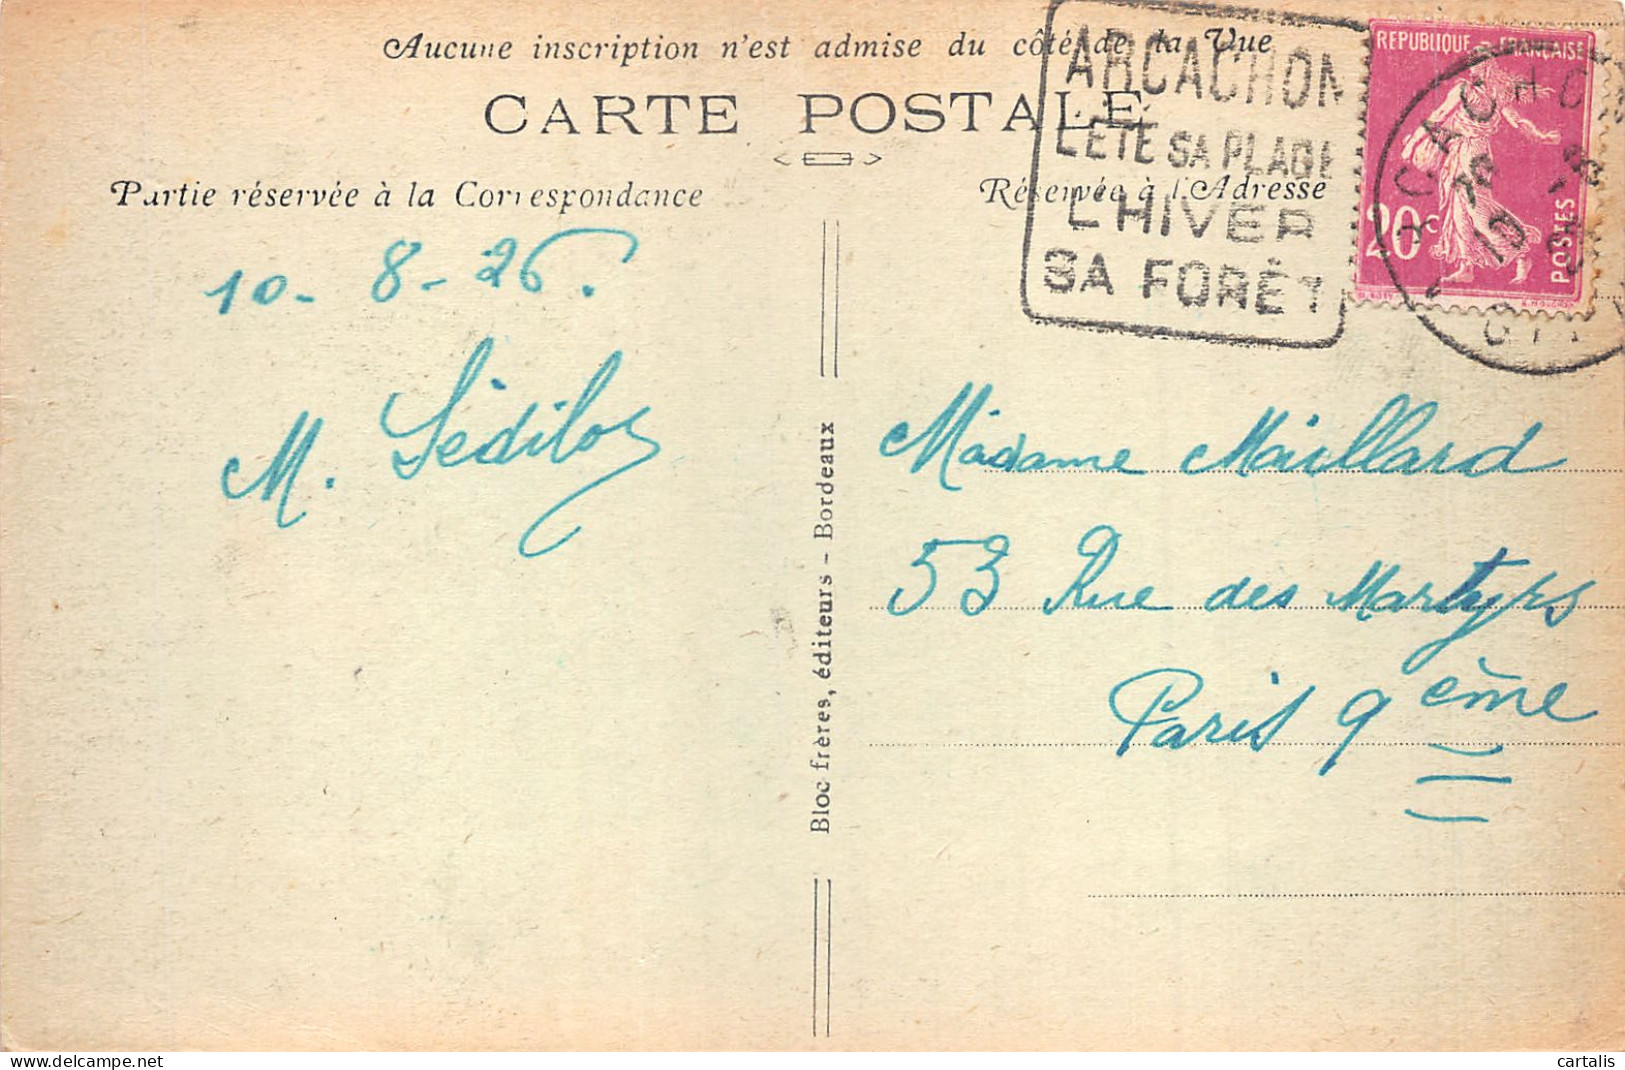 Aucune inscription n'est admise du côté de la Vue
CARTE POSTALE
Partie réservée à la Correspondance
Réservée à l'Adresse
ARCACHON
L'ÉTÉ SA PLAGE
L'HIVER
SA FORÊT
REPUBLIQUE FRANÇAISE
20c
POSTES
ARCACHON
10
GIR
10-8-26.
M. Sédilot
Madame Maillard
53 Rue des Martyrs
Paris 9ème
Bloc frères, éditeurs - Bordeaux
delcampe.net
cartalis